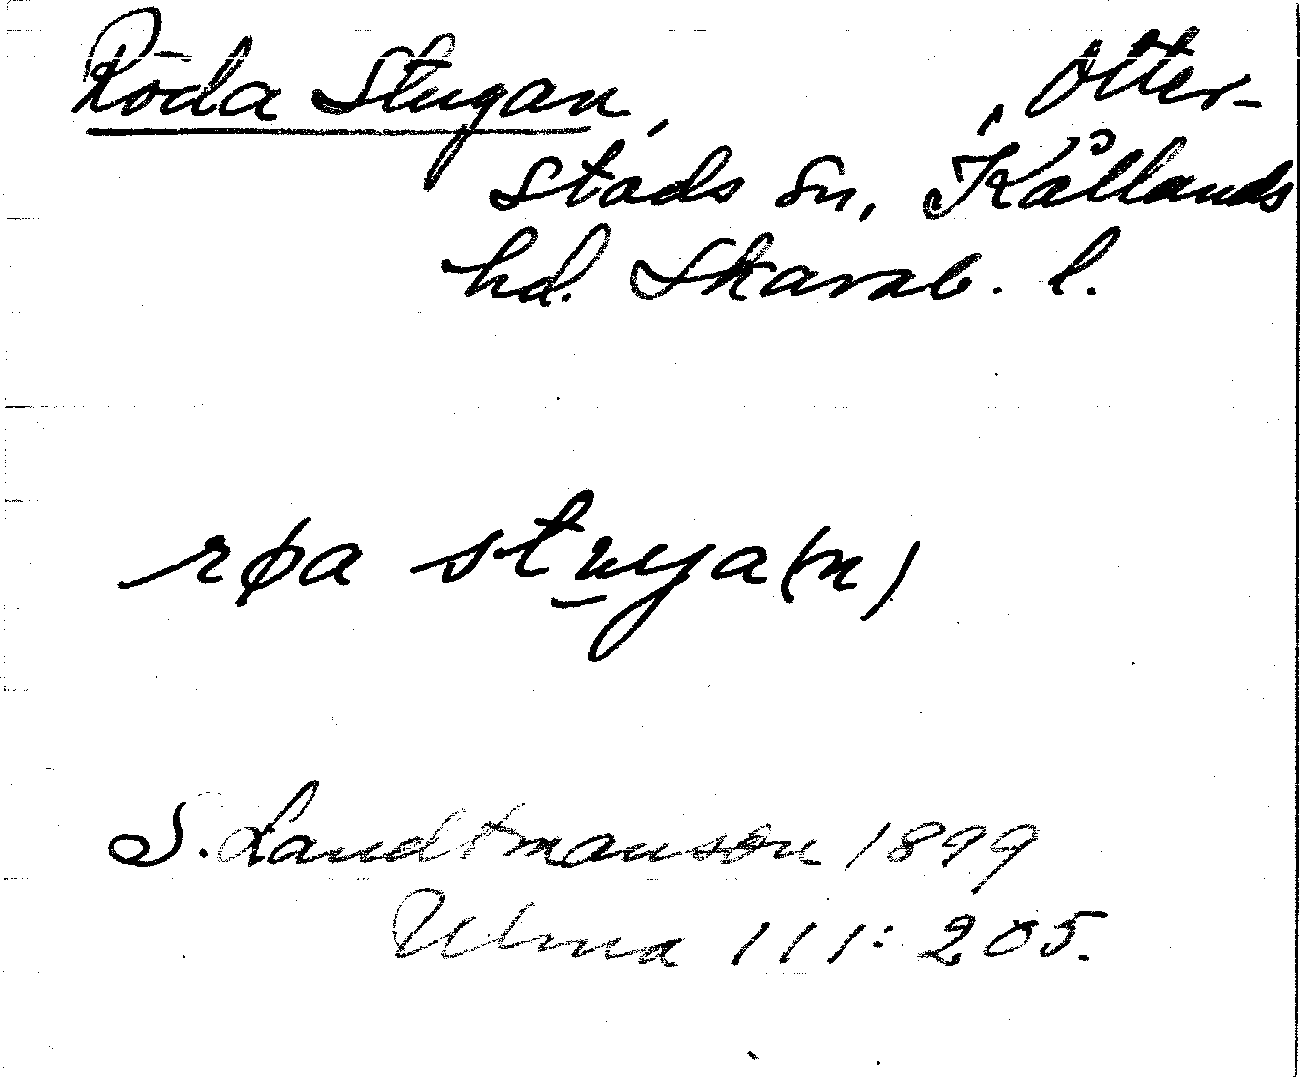 Röda Stugan, Otter-
stads sn, Kållands
hd. Skarab. l.
røa stuga(n)
S. Landtmanson 1899
Ulma 111:205.